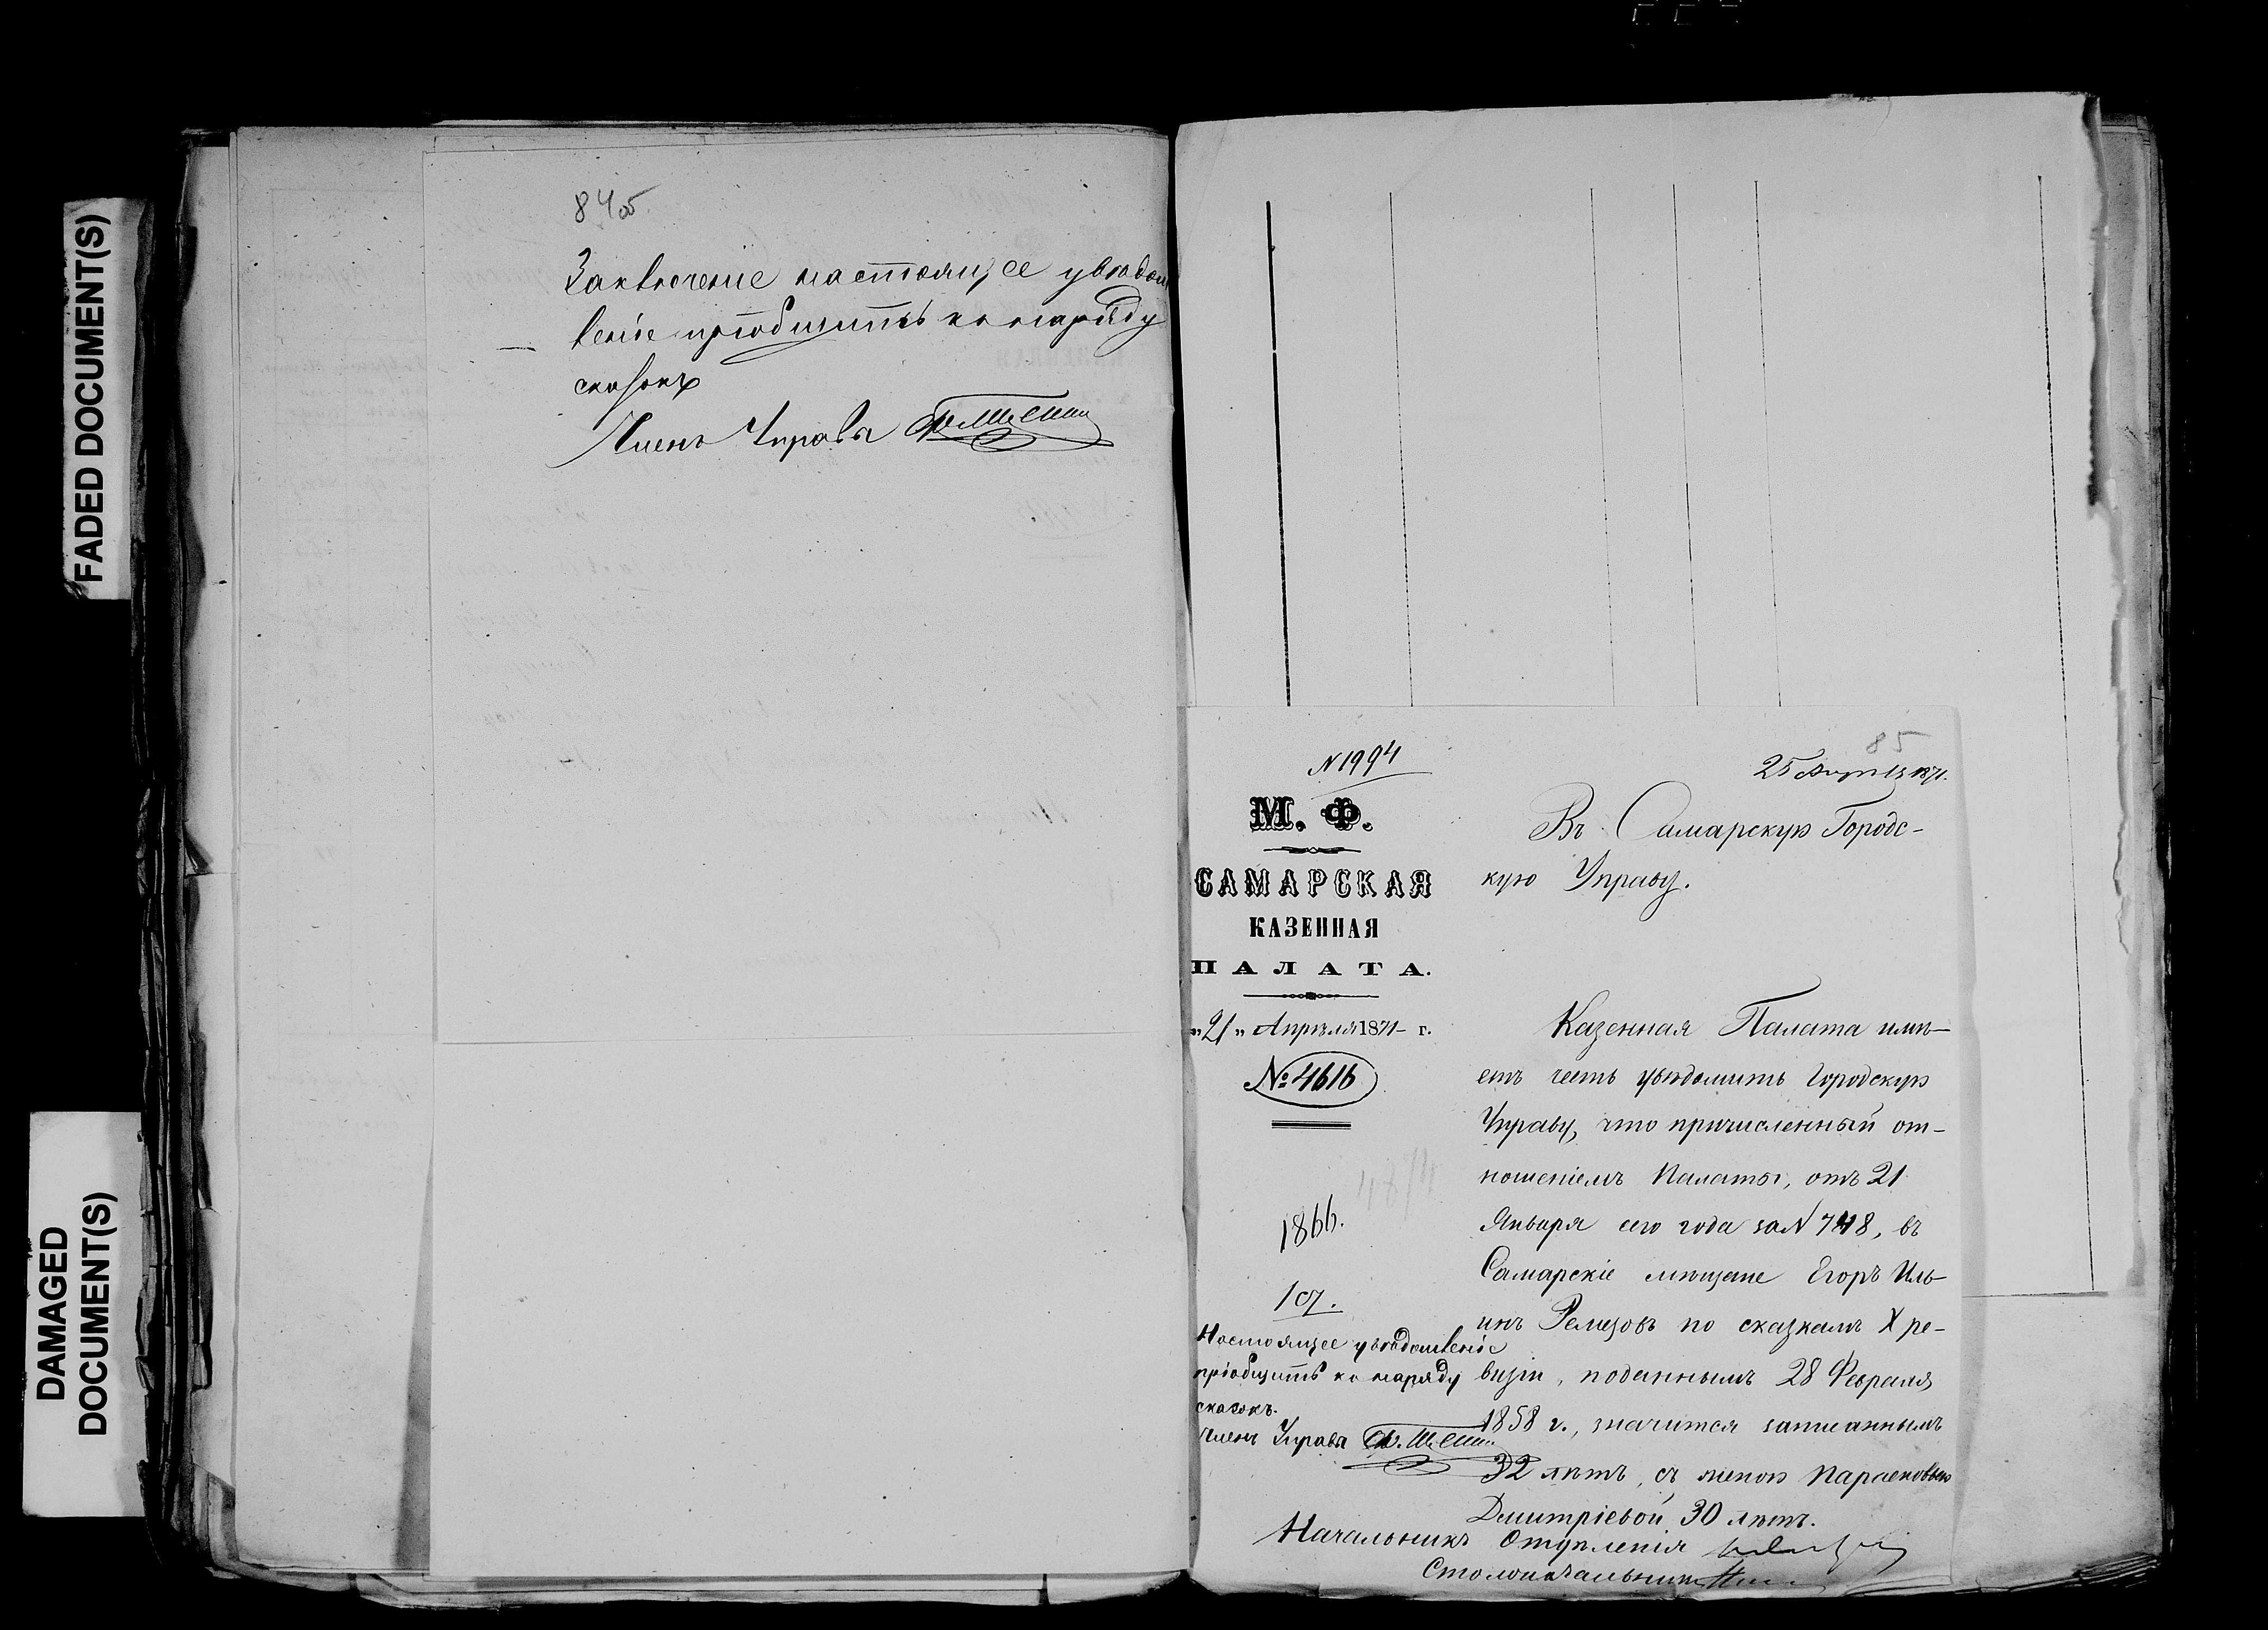 FADED DOCUMENT(S)
DAMAGED
DOCUMENT(S)
84об
Заключеніе настоящее уведом
леніе пріобщить къ наряду
сказокъ
Членъ Управы
85
N 1994
25 Апрѣля 1871.
М. Ф.
САМАРСКАЯ
КАЗЕННАЯ
ПАЛАТА.
„21„ Апрѣля 1871 г.
№ 4616
1866.
107.
Настоящее уведомленіе
пріобщить къ наряду
сказокъ.
Членъ Управы
Въ Самарскую Городс-
кую Управу.
Казенная Палата имѣ-
етъ честь увѣдомить Городскую
Управу, что причисленный от-
ношеніемъ Палаты, отъ 21
Января сего года за N 748, въ
Самарскіе мѣщане Егоръ Иль-
инъ Ремезовъ по сказкамъ X ре-
визіи, поданнымъ 28 Февраля
1858 г., значится записаннымъ
32 лѣтъ, съ женою Парасковьею
Дмитріевой 30 лѣтъ.
Начальникъ Отдѣленія
Столоначальникъ